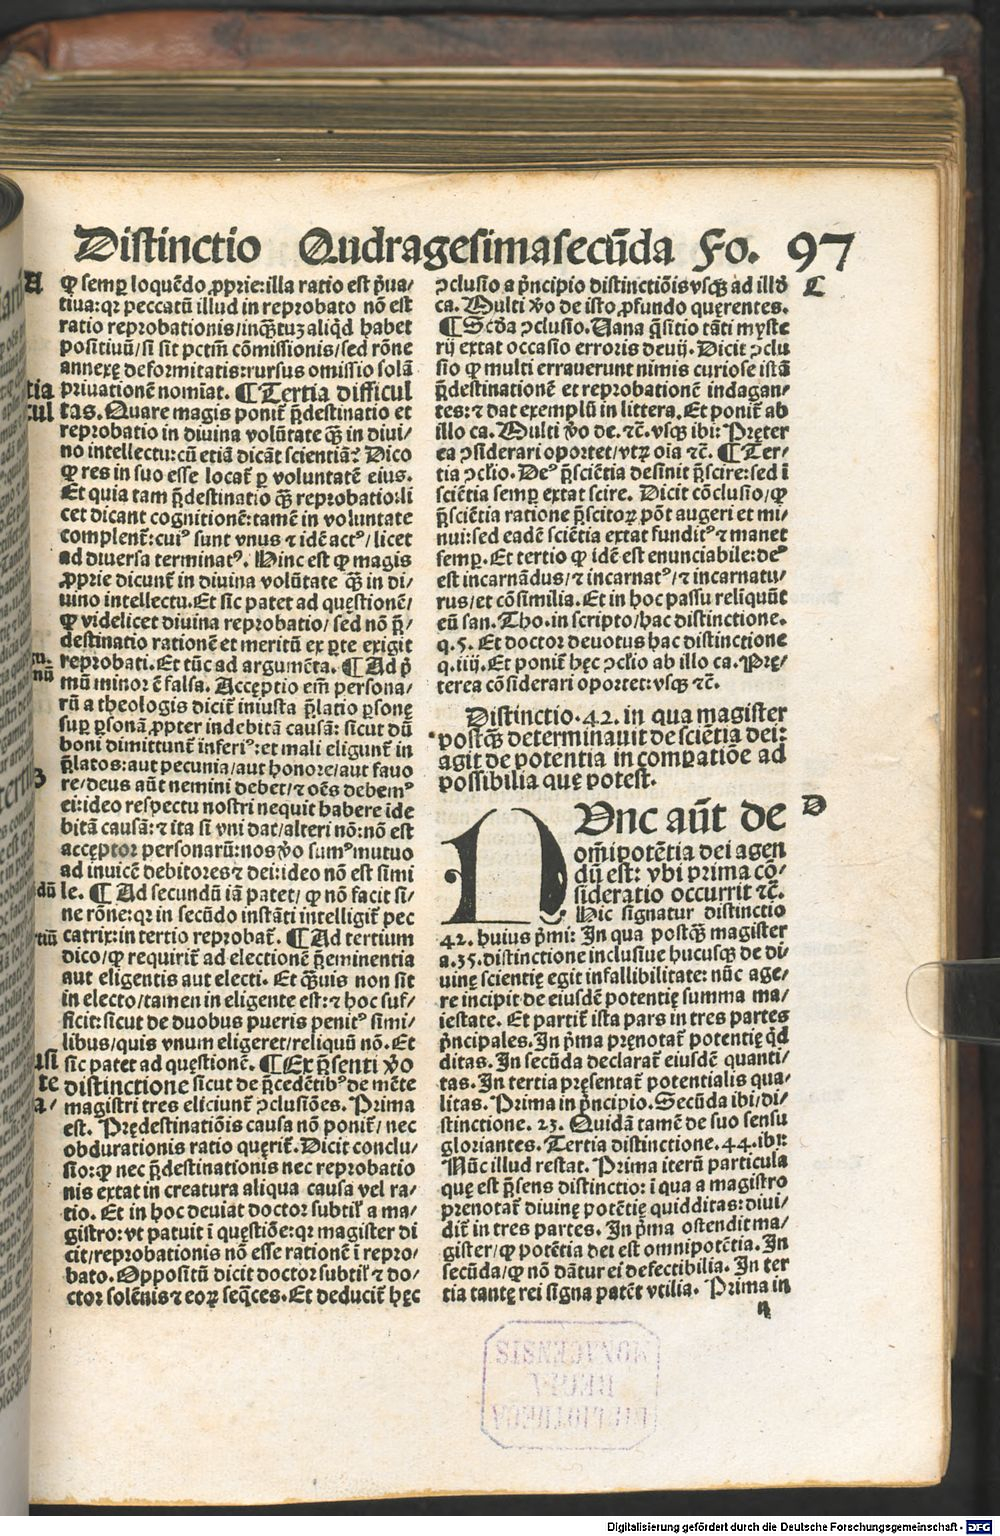 Distinctio Qudragesimasecūda Fo. 97
ꝙ semꝑ loquēdo ꝓprie: illa ratio est p̄ua-
tiua: qꝛ peccatū illud in reprobato nō est
ratio reprobationis/inqꝫtuꝫ aliqd habet
positiuū/si sit pctm̄ cōmissionis/sed rōne
annexę deformitatis: rursus omissio solā
priuationē nomīat. ¶ Tertia difficul
tas. Quare magis ponit̄ p̄destinatio et
reprobatio in diuina volūtate qꝫ in diui/
no intellectu: cū etiā dicāt scientiā? Dico
ꝙ res in suo esse locat̄ ꝑ voluntatē eius.
Et quia tam p̄destinatio qꝫ reprobatio: li
cet dicant cognitionē: tamē in voluntate
complent̄: cuiꝰ sunt vnus ⁊ idē actꝰ/licet
ad diuersa terminatꝰ. Hinc est ꝙ magis
ꝓprie dicunt̄ in diuina volūtate qꝫ in di/
uino intellectu. Et sic patet ad quęstionē/
ꝙ videlicet diuina reprobatio/ sed nō p̄/
destinatio rationē et meritū ex ꝑte exigit
reprobati. Et tūc ad argumēta. ¶ Ad p̄
mū minor ē falsa. Acceptio em̄ persona/
rū a theologis dicit̄ iniusta p̄latio ꝑsonę
suꝑ ꝑsonā ꝓpter indebitā causā: sicut dū
boni dimittunt̄ inferiꝰ: et mali eligunt̄ in
p̄latos: aut pecunia/aut honore/aut fauo
re/deus aūt nemini debet/⁊ oēs debemꝰ
ei: ideo respectu nostri nequit habere īde
bitā causā: ⁊ ita si vni dat/alteri nō: nō est
acceptor personarū: nos v̄o sumꝰ mutuo
ad inuicē debitores ⁊ dei: ideo nō est simi
le. ¶ Ad secundū iā patet/ ꝙ nō facit si-
ne rōne: qꝛ in secūdo instāti intelligit̄ pec
catrix: in tertio reprobat̄. ¶ Ad tertium
dico/ꝙ requirit̄ ad electionē p̄eminentia
aut eligentis aut electi. Et qꝫuis non sit
in electo/tamen in eligente est: ⁊ hoc suf/
ficit: sicut de duobus pueris penitꝰ simi/
libus/quis vnum eligeret/reliquū nō. Et
sic patet ad questionē. ¶ Ex p̄senti v̄o
distinctione sicut de p̄cedētibꝰ de mēte
magistri tres eliciunt̄ ↄclusiōes. Prima
est. Prędestinatiōis causa nō ponit̄/ nec
obdurationis ratio quęrit̄. Dicit conclu/
sio: ꝙ nec p̄destinationis nec reprobatio
nis extat in creatura aliqua causa vel ra/
tio. Et in hoc deuiat doctor subtil̄ a ma/
gistro: vt patuit ī quęstiōe: qꝛ magister di
cit/reprobationis nō esse rationē ī repro/
bato. Oppositū dicit doctor subtil̄ ⁊ do/
ctor solēnis ⁊ eoꝝ seq̄ces. Et deducit̄ hęc
ↄclusio a p̄ncipio distinctiōis vsqꝫ ad illd̄
ca. Multi v̄o de isto ꝓfundo quęrentes.
¶ Scd̄a ↄclusio. Uana q̄sitio tāti myste
rij extat occasio erroris deuij. Dicit ↄclu
sio ꝙ multi errauerunt nimis curiose istā
p̄destinationē et reprobationē indagan/
tes: ⁊ dat exemplū in littera. Et ponit̄ ab
illo ca. Multi v̄o de. ⁊c̄. vsqꝫ ibi: Pręter
ea ↄsiderari oportet/vtꝝ oīa ⁊c̄. ¶ Ter-
tia ↄcl̄io. Deꝰ p̄sciētia desinit p̄scire: sed ī
sciētia semꝑ extat scire. Dicit cōclusio/ꝙ
p̄sciētia ratione p̄scitoꝝ pōt augeri et mi/
nui: sed eadē sciētia extat fundit̄ꝰ ⁊ manet
semꝑ. Et tertio ꝙ idē est enunciabile: deꝰ
est incarnādus/⁊ incarnatꝰ/⁊ incarnatu/
rus/et cōsimilia. Et in hoc passu reliquūt
eū san. Tho. in scripto/hac distinctione.
q. 5. Et doctor deuotus hac distinctione
q. iiij. Et ponit̄ hęc ↄclio ab illo ca. Prę/
terea cōsiderari oportet: vsqꝫ ⁊c̄.
Distinctio. 42. in qua magister
postqꝫ determinauit de sciētia dei:
agit de potentia in comꝑatiōe ad
possibilia quę potest.
NVnc aūt de
om̄ipotētia dei agen
dū est: vbi prima cō-
sideratio occurrit ⁊c̄.
Hic signatur distinctio
42. huius p̄mi: In qua postqꝫ magister
a. 35. distinctione inclusiue hucusqꝫ de di/
uinę scientię egit infallibilitate: nūc age/
re incipit de eiusdē potentię summa ma/
iestate. Et partit̄ ista pars in tres partes
p̄ncipales. In p̄ma pręnotat̄ potentię qd
ditas. In secūda declarat̄ eiusdē quanti/
tas. In tertia pręsentat̄ potentialis qua/
litas. Prima in p̄ncipio. Secūda ibi/di/
stinctione. 23. Quidā tamē de suo sensu
gloriantes. Tertia distinctione. 44. ibi:
Nūc illud restat. Prima iterū particula
quę est p̄sens distinctio: ī qua a magistro
prenotat̄ diuinę potētię quidditas: diui/
dit̄ in tres partes. In p̄ma ostendit ma/
gister/ꝙ potētia dei est omnipotētia. In
secūda/ꝙ nō dātur ei defectibilia. In ter
tia tantę rei signa patēt vtilia. Prima in
n
C
D
BIBLIOTHECA
REGIA
MONACENSIS
Digitalisierung gefördert durch die Deutsche Forschungsgemeinschaft - DFG